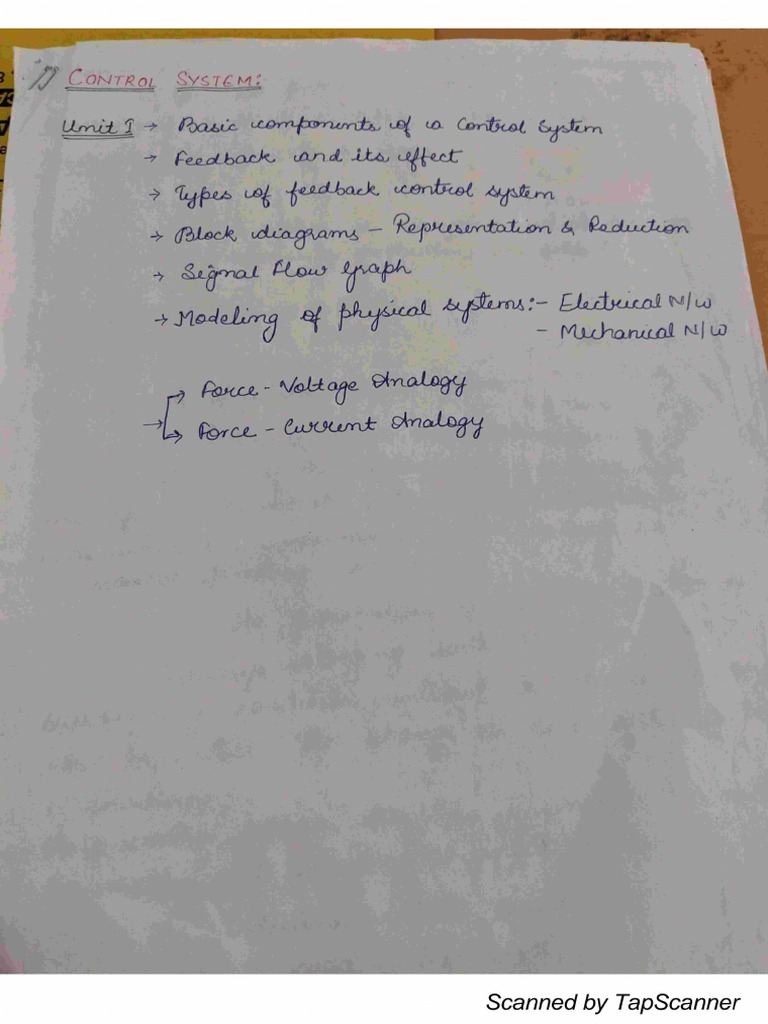 1) CONTROL SYSTEM:
Unit I → Basic components of a Control System
→ Feedback and its effect
→ Types of feedback control system
→ Block diagrams - Representation & Reduction
→ Signal Flow Graph
→ Modeling of physical systems:- Electrical N/W
- Mechanical N/W
→ Force - Voltage Analogy
→ Force - Current Analogy
Scanned by TapScanner